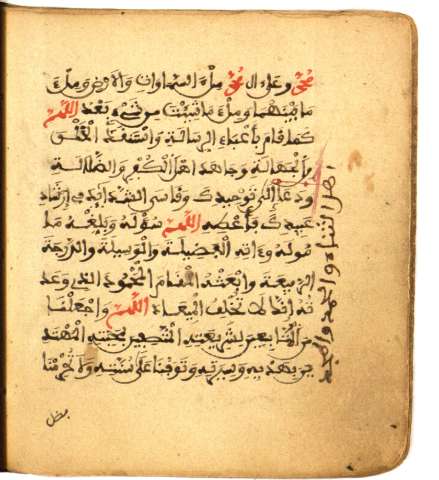 محمد وعلى ءال محمد ملء السماوات والارض وملء
ما بينهما وملء ما شئت من شيء بعد اللهم
كما قام بأعباء الرسالة واستنقذ الخلق
من الجهالة وجاهد اهل الكفر والضلالة
ودعا الى توحيدك وقاسى الشدائد في ارشاد
عبيدك فأعطه اللهم سؤله وبلغه مأ
موله وءاته الفضيلة والوسيلة والدرجة
الرفيعة وابعثه المقام المحمود الذي وعد
ته انك لا تخلف الميعاد اللهم واجعلنا
من المتبعين لشريعته المتصفين بمحبته المهتد
ين بهديه وسيرته وتوفنا على سنته ولا تحرمنا
فضل
اهل الثناء والحمد والمجد